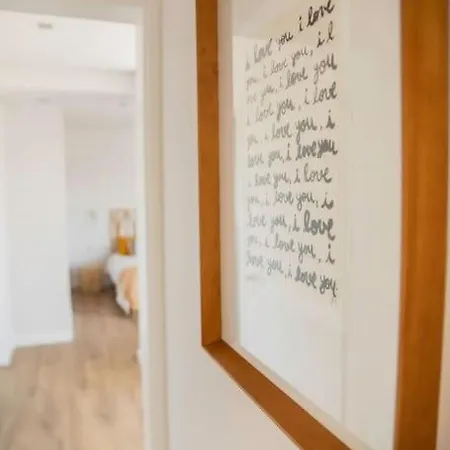 i love you, i love
you, i love you, i l
ove you, i love you
, i love you, i love
you, i love you, i
love you, i love you
, i love you, i love
you, i love you, i
love you, i love
you, i love you, i
love you, i love you